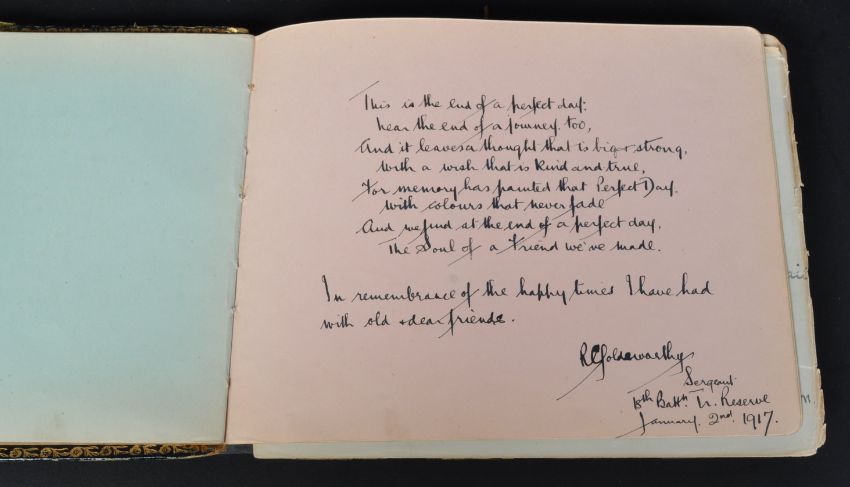 This is the end of a perfect day:
near the end of a journey. too,
And it leaves a thought that is big & strong,
With a wish that is kind and true,
For memory has painted that Perfect Day.
With colours that never fade
And we find at the end of a perfect day,
The Soul of a Friend we've made.
In remembrance of the happy times I have had
with old & dear friends.
R C Goldsworthy
Sergeant
Battn. Tr. Reserve
January. 2nd. 1917.